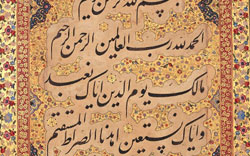 بسم الله الرحمن الرحيم
الحمد لله رب العالمين الرحمن الرحيم
مالك يوم الدين اياك نعبد
واياك نستعين اهدنا الصراط المستقيم